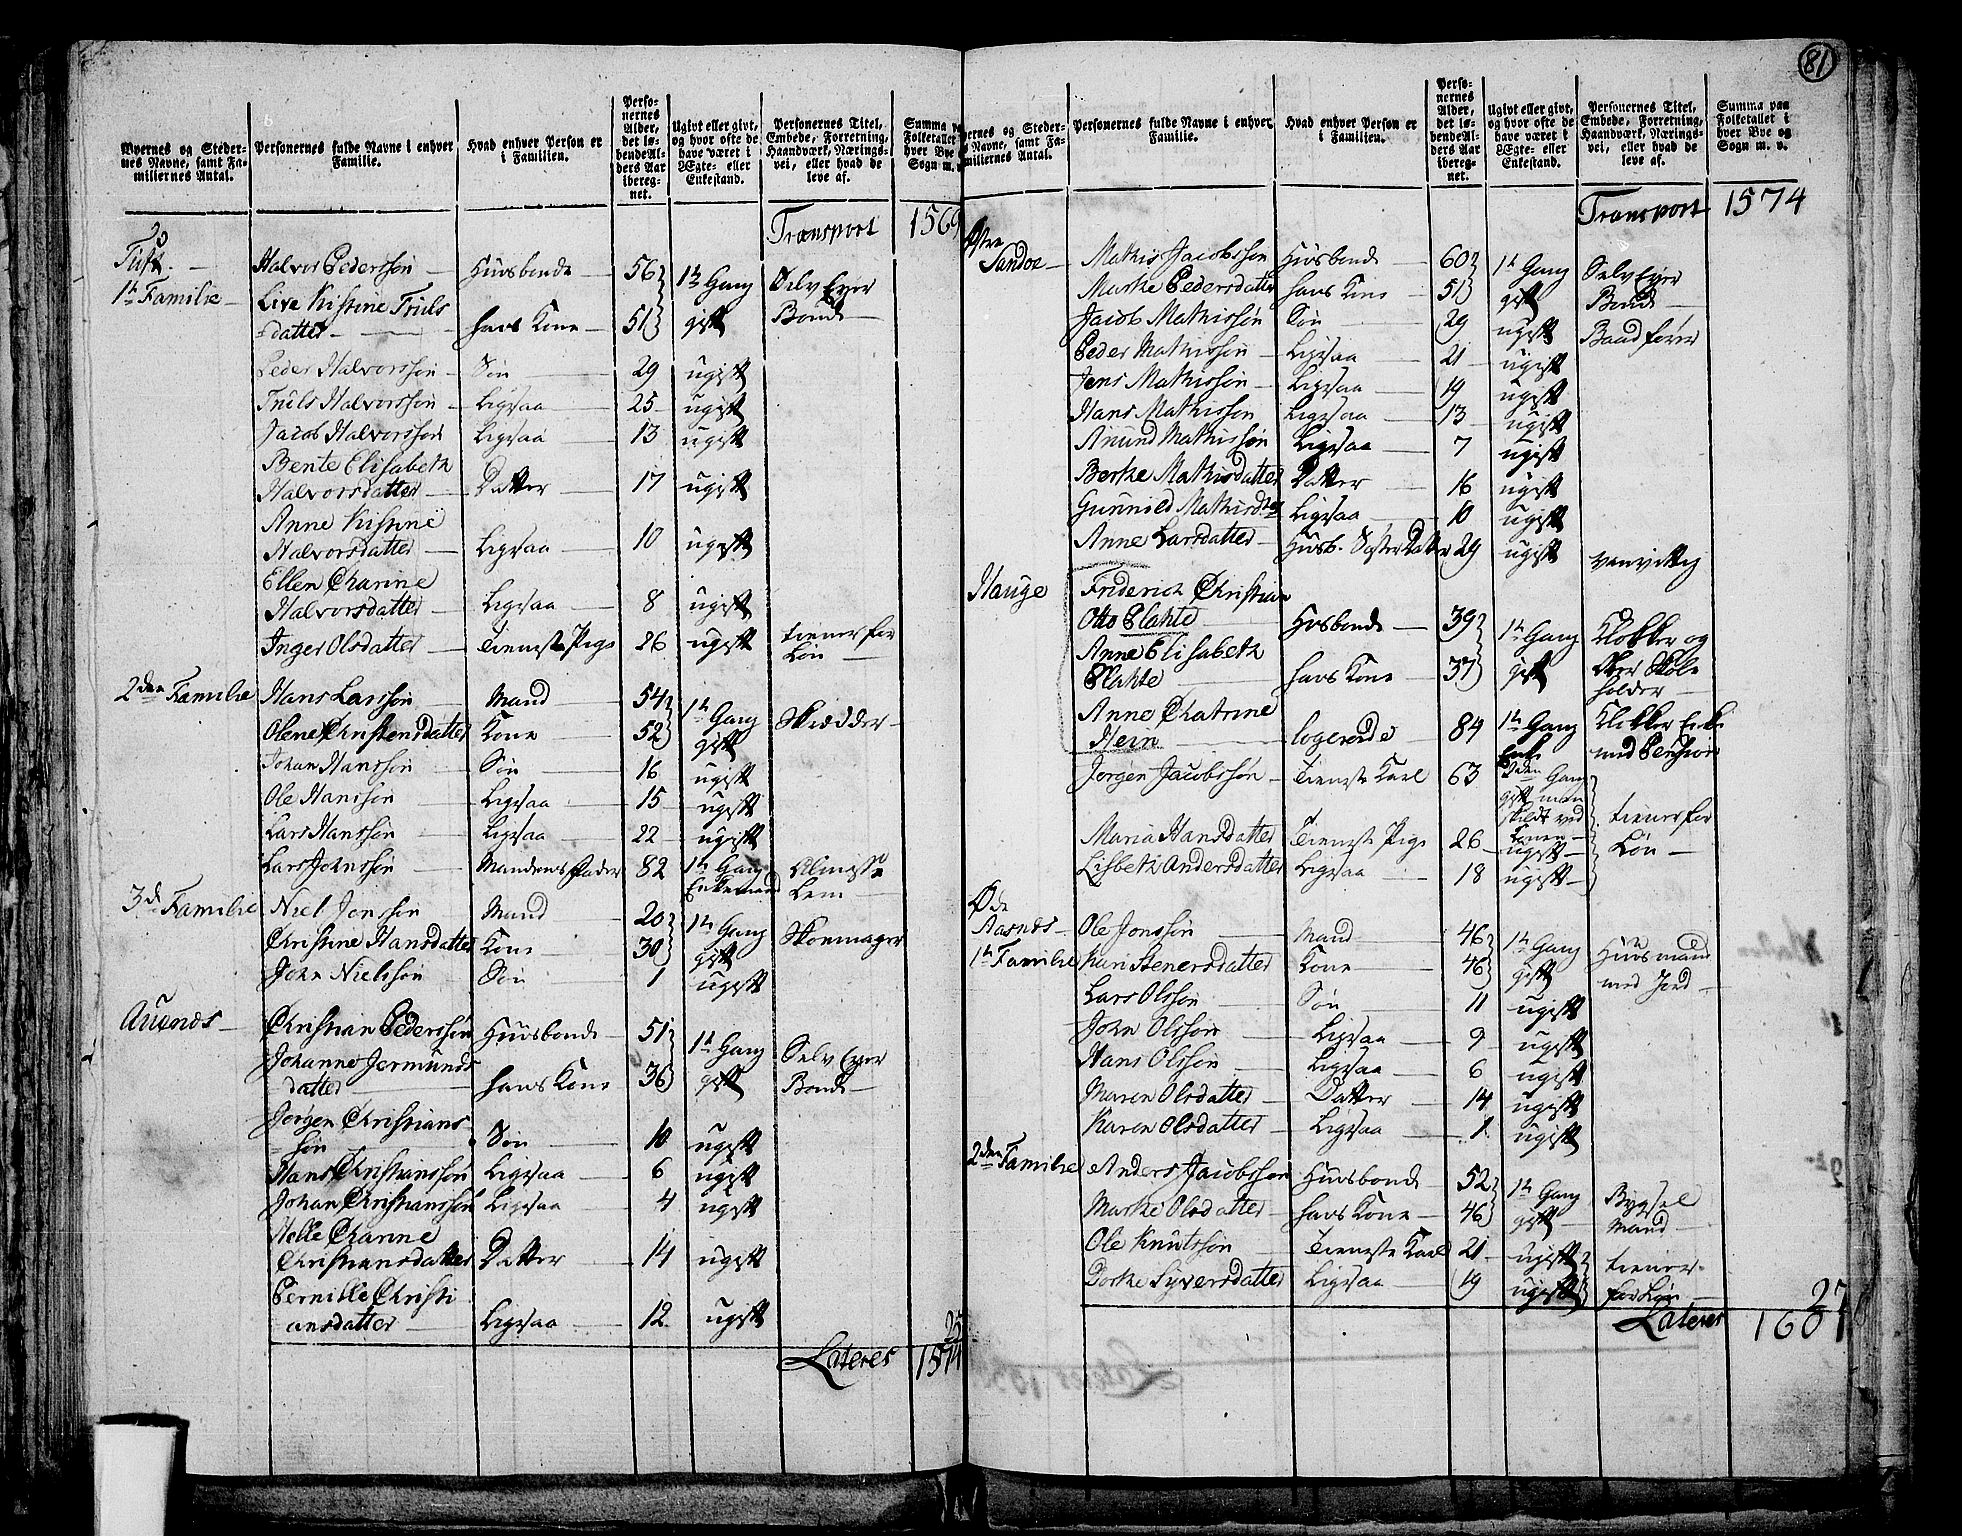 81
Byernes og Stedernes Navne, samt Familiernes Antal.
Personernes fulde Navne i enhver Familie.
Hvad enhver Person er i Familien.
Personernes Alder, det løbende Alders Aar iberegnet.
Ugivt eller givt, og hvor ofte de have været i Ægte- eller Enkestand.
Personernes Titel, Embede, Forretning, Haandværk, Næringsvei, eller hvad de leve af.
Summa paa Folketallet i hver Bye og Sogn m. v.
Transport
Tuft
Halvor Pedersson Huusbonde 56 1te Gang Selv Eyer
1te Familie Live Kistine Truls
datter hans Kone 51 gift Bonde
Peder Halvorsson Søn 29 ugift
Truls Halvorsson Ligesaa 25 ugift
Jacob Halvorsson Ligesaa 13 ugift
Bente Elisabeth
Halvorsdatter Datter 17 ugift
Anne Kistine
Halvorsdatter Ligesaa 10 ugift
Ellen Charine
Halvorsdatter Ligesaa 8 ugift
Inger Olsdatter Tieneste Pige 26 ugift tiener for Løn
2den Familie Hans Larsson Mand 54 1te Gang Skrædder
Olene Christensdatter Kone 52 gift
Johan Hansson Søn 16 ugift
Ole Hansson Ligesaa 15 ugift
Lars Hansson Ligesaa 22 ugift
Lars Johnsson Mandens Fader 82 1te Gang Enkemand Almisse Lem
3de Familie Niel Jonsson Mand 20 1te Gang Skoemager
Christine Hansdatter Kone 30 gift
John Nielsson Søn 1 ugift
Auenæs
Christian Pedersson Huusbonde 51 1te Gang Selv Eyer
Johanne Jermunds
datter hans Kone 36 gift Bonde
Jørgen Christians
søn Søn 10 ugift
Hans Christiansson Ligesaa 6 ugift
Johan Christiansson Ligesaa 4 ugift
Helle Charine
Christiansdatter Datter 14 ugift
Pernille Christi
ansdatter Ligesaa 12 ugift
25
Lateres 1574
ernes og Steder-
s Navne, samt Fa-
miliernes Antal.
Personernes fulde Navne i enhver Familie.
Hvad enhver Person er i Familien.
Personernes Alder, det løbende Alders Aar iberegnet.
Ugivt eller givt, og hvor ofte de have været i Ægte- eller Enkestand.
Personernes Titel, Embede, Forretning, Haandværk, Næringsvei, eller hvad de leve af.
Summa paa Folketallet i hver Bye og Sogn m. v.
Transport 1574
Østre
Sandøe Mathis Jacobsson Huusbonde 60 1te Gang Selv Eyer
Marthe Pedersdatter hans Kone 51 gift Bonde
Jacob Mathisson Søn 29 ugift Baadfører
Peder Mathisson Ligesaa 21 ugift
Jens Mathisson Ligesaa 19 ugift
Hans Mathisson Ligesaa 13 ugift
Anund Mathisson Ligesaa 7 ugift
Berthe Mathisdatter Datter 16 ugift
Gunnild Mathisdtr Ligesaa 10 ugift
Anne Larsdatter Husb. Søster Datter 29 ugift vanvittig
Hauge Friderich Christian
Otto Plahte Husbonde 39 1te Gang Klokker og
Anne Elisabeth
Plahte hans Kone 37 gift Skole holder
Anne Chatrine
Hein logerende 84 1te Gang Enke Klokker Enke med Pension
Jørgen Jacobsson Tieneste Karl 63 2den Gang gift men skildt ved Konen
Maria Hansdatter Tieneste Pige 26 ugift tiener for
Lisbeth Andersdatter Ligesaa 18 ugift Løn
Øde
Aasnæs Ole Jonsson Mand 46 1te Gang Huusmand
1te Familie Kari Stenersdatter Kone 46 gift med Jord
Lars Olsson Søn 11 ugift
John Olsson Ligesaa 9 ugift
Hans Olsson Ligesaa 6 ugift
Maren Olsdatter Datter 14 ugift
Karen Olsdatter Ligesaa 1 ugift
2den Familie Anders Jacobsson Huusbonde 52 1te Gang Bygsel
Marthe Olsdatter hans Kone 46 gift Mand
Ole Knutsson Tieneste Karl 21 ugift tiener
Dorthe Syversdatter Ligesaa 19 ugift for Løn
27
Lateres 1601